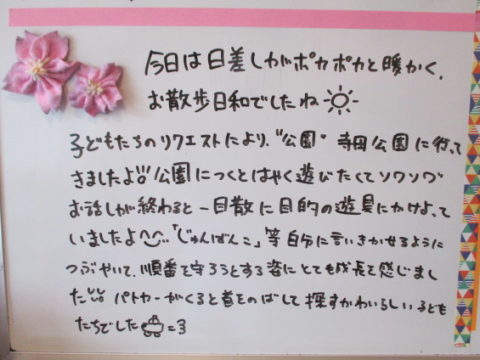 今日は日差しがポカポカと暖かく、
お散歩日和でしたね
子どもたちのリクエストにより、"公園" 寺田公園に行って
きましたよ!!公園につくとはやく遊びたくてソワソワ
お話しが終わると一目散に目的の遊具にかけよって
いましたよ^^…「じゅんばんこ」等自分に言いきかせるように
つぶやいて、順番を守ろうとする姿にとても成長を感じまし
た!!パトカーがくると首をのばして探すかわいらしい子ども
たちでした =3